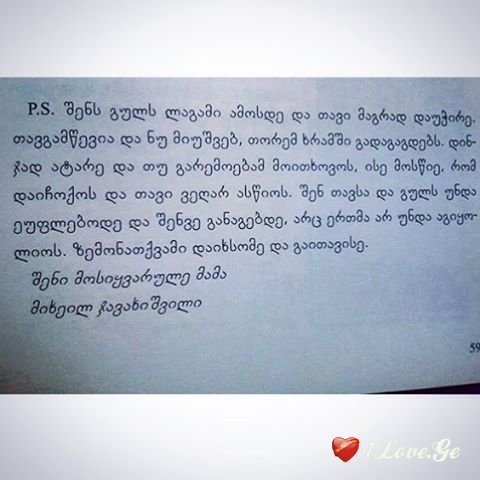 P.S. შენს გულს ლაგამი ამოსდე და თავი მაგრად დაუჭირე.
თავგამწევია და ნუ მიუშვებ, თორემ ხრამში გადაგაგდებს. დინ-
ჯად ატარე და თუ გარემოებამ მოითხოვოს, ისე მოსწიე, რომ
დაიჩოქოს და თავი ვეღარ ასწიოს. შენ თავსა და გულს უნდა
ეუფლებოდე და შენვე განაგებდე, არც ერთმა არ უნდა აგიყო-
ლიოს. ზემონათქვამი დაიხსომე და გაითავისე.
შენი მოსიყვარულე მამა
მიხეილ ჯავახიშვილი
59
i Love.Ge